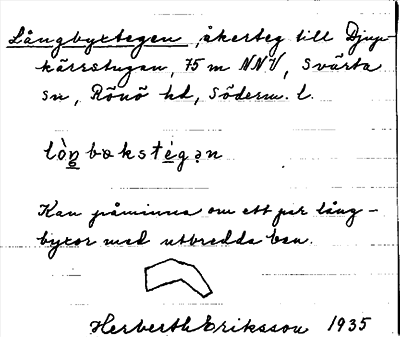 Långbyxtegen, åkerteg till Djup-
kärrstugan, 75 m NNV, Svärta
sn, Rönö hd, Söderm. l.
lòŋbokstégən
Kan påminna om ett par lång-
byxor med utbredda ben.
Herberth Eriksson 1935